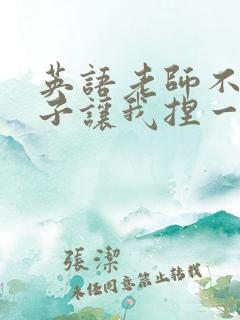 英語老師不
子讓我捏一
張潔
未經同意禁止轉載